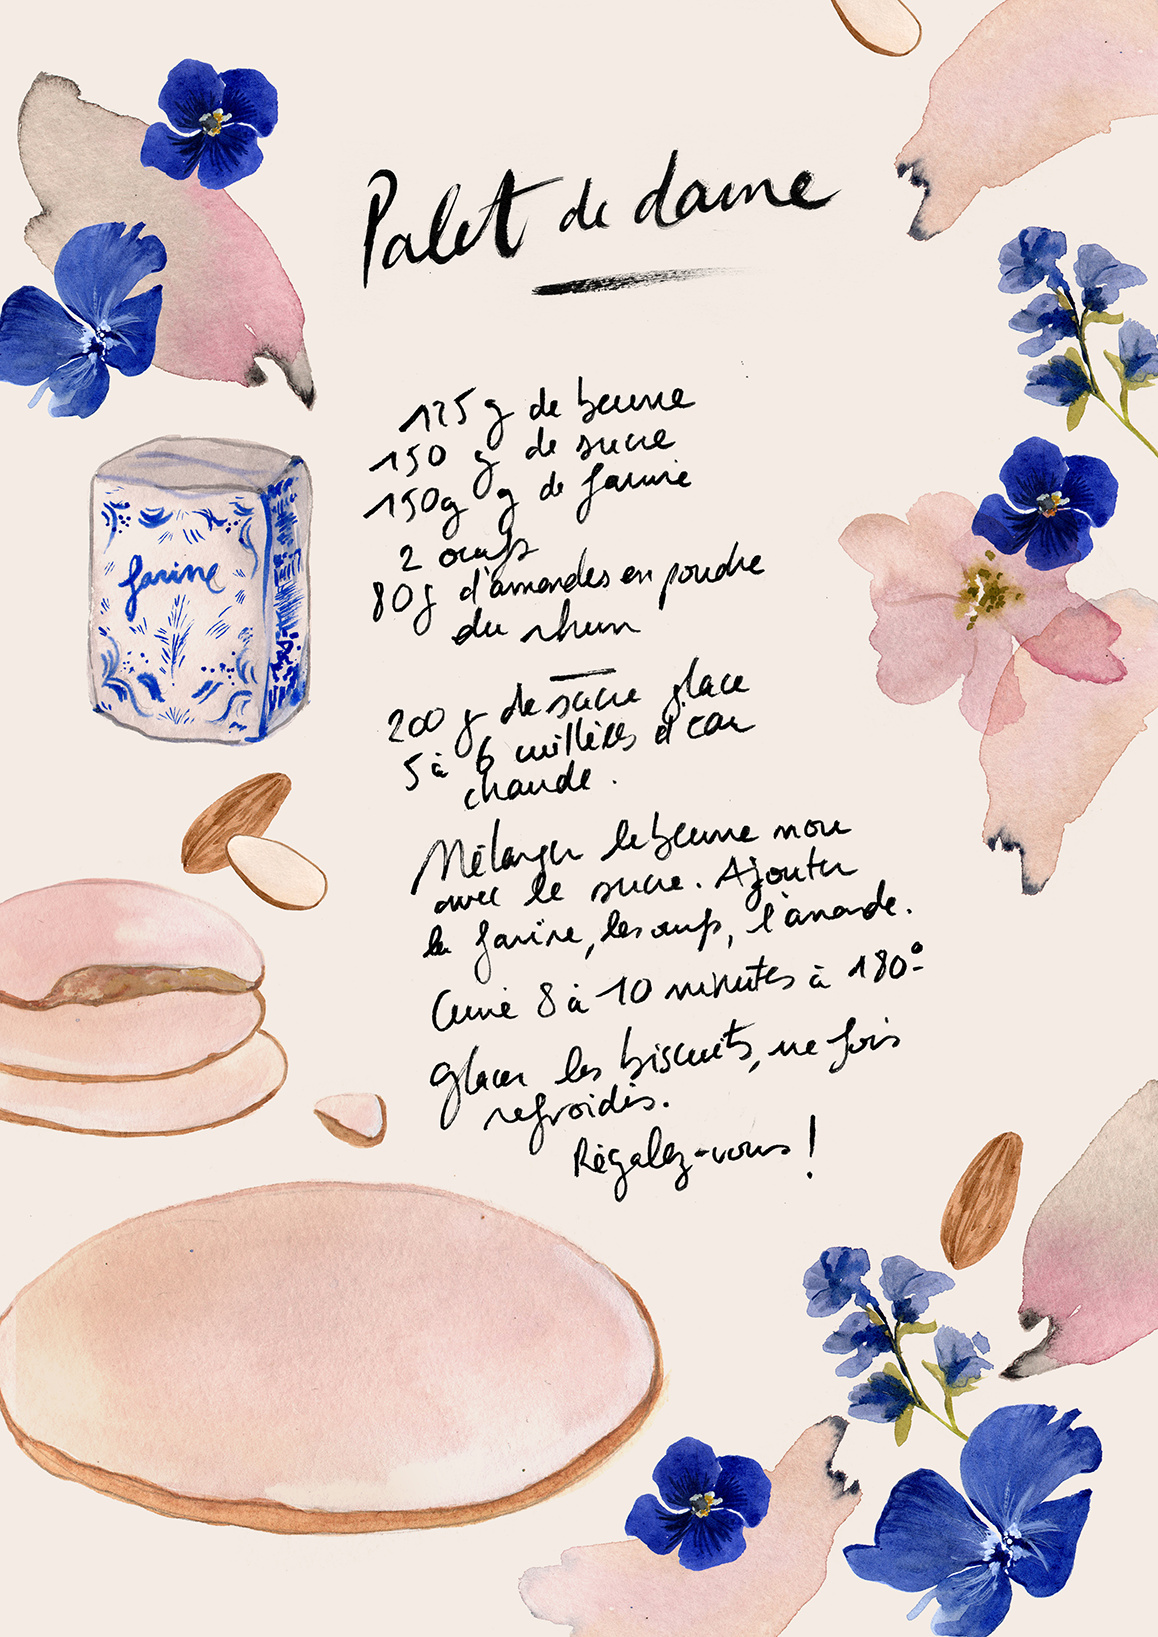 Palet de dame
125 g de beurre
150 g de sucre
150g g de farine
2 oeufs
80g d'amandes en poudre
du rhum
200 g de sucre glace
5 à 6 cuillères d'eau
chaude.
farine
Mélanger le beurre mou
avec le sucre. Ajouter
la farine, les oeufs, l'amande.
Cuire 8 à 10 minutes à 180°
Glacer les biscuits, une fois
refroidis.
Régalez-vous !